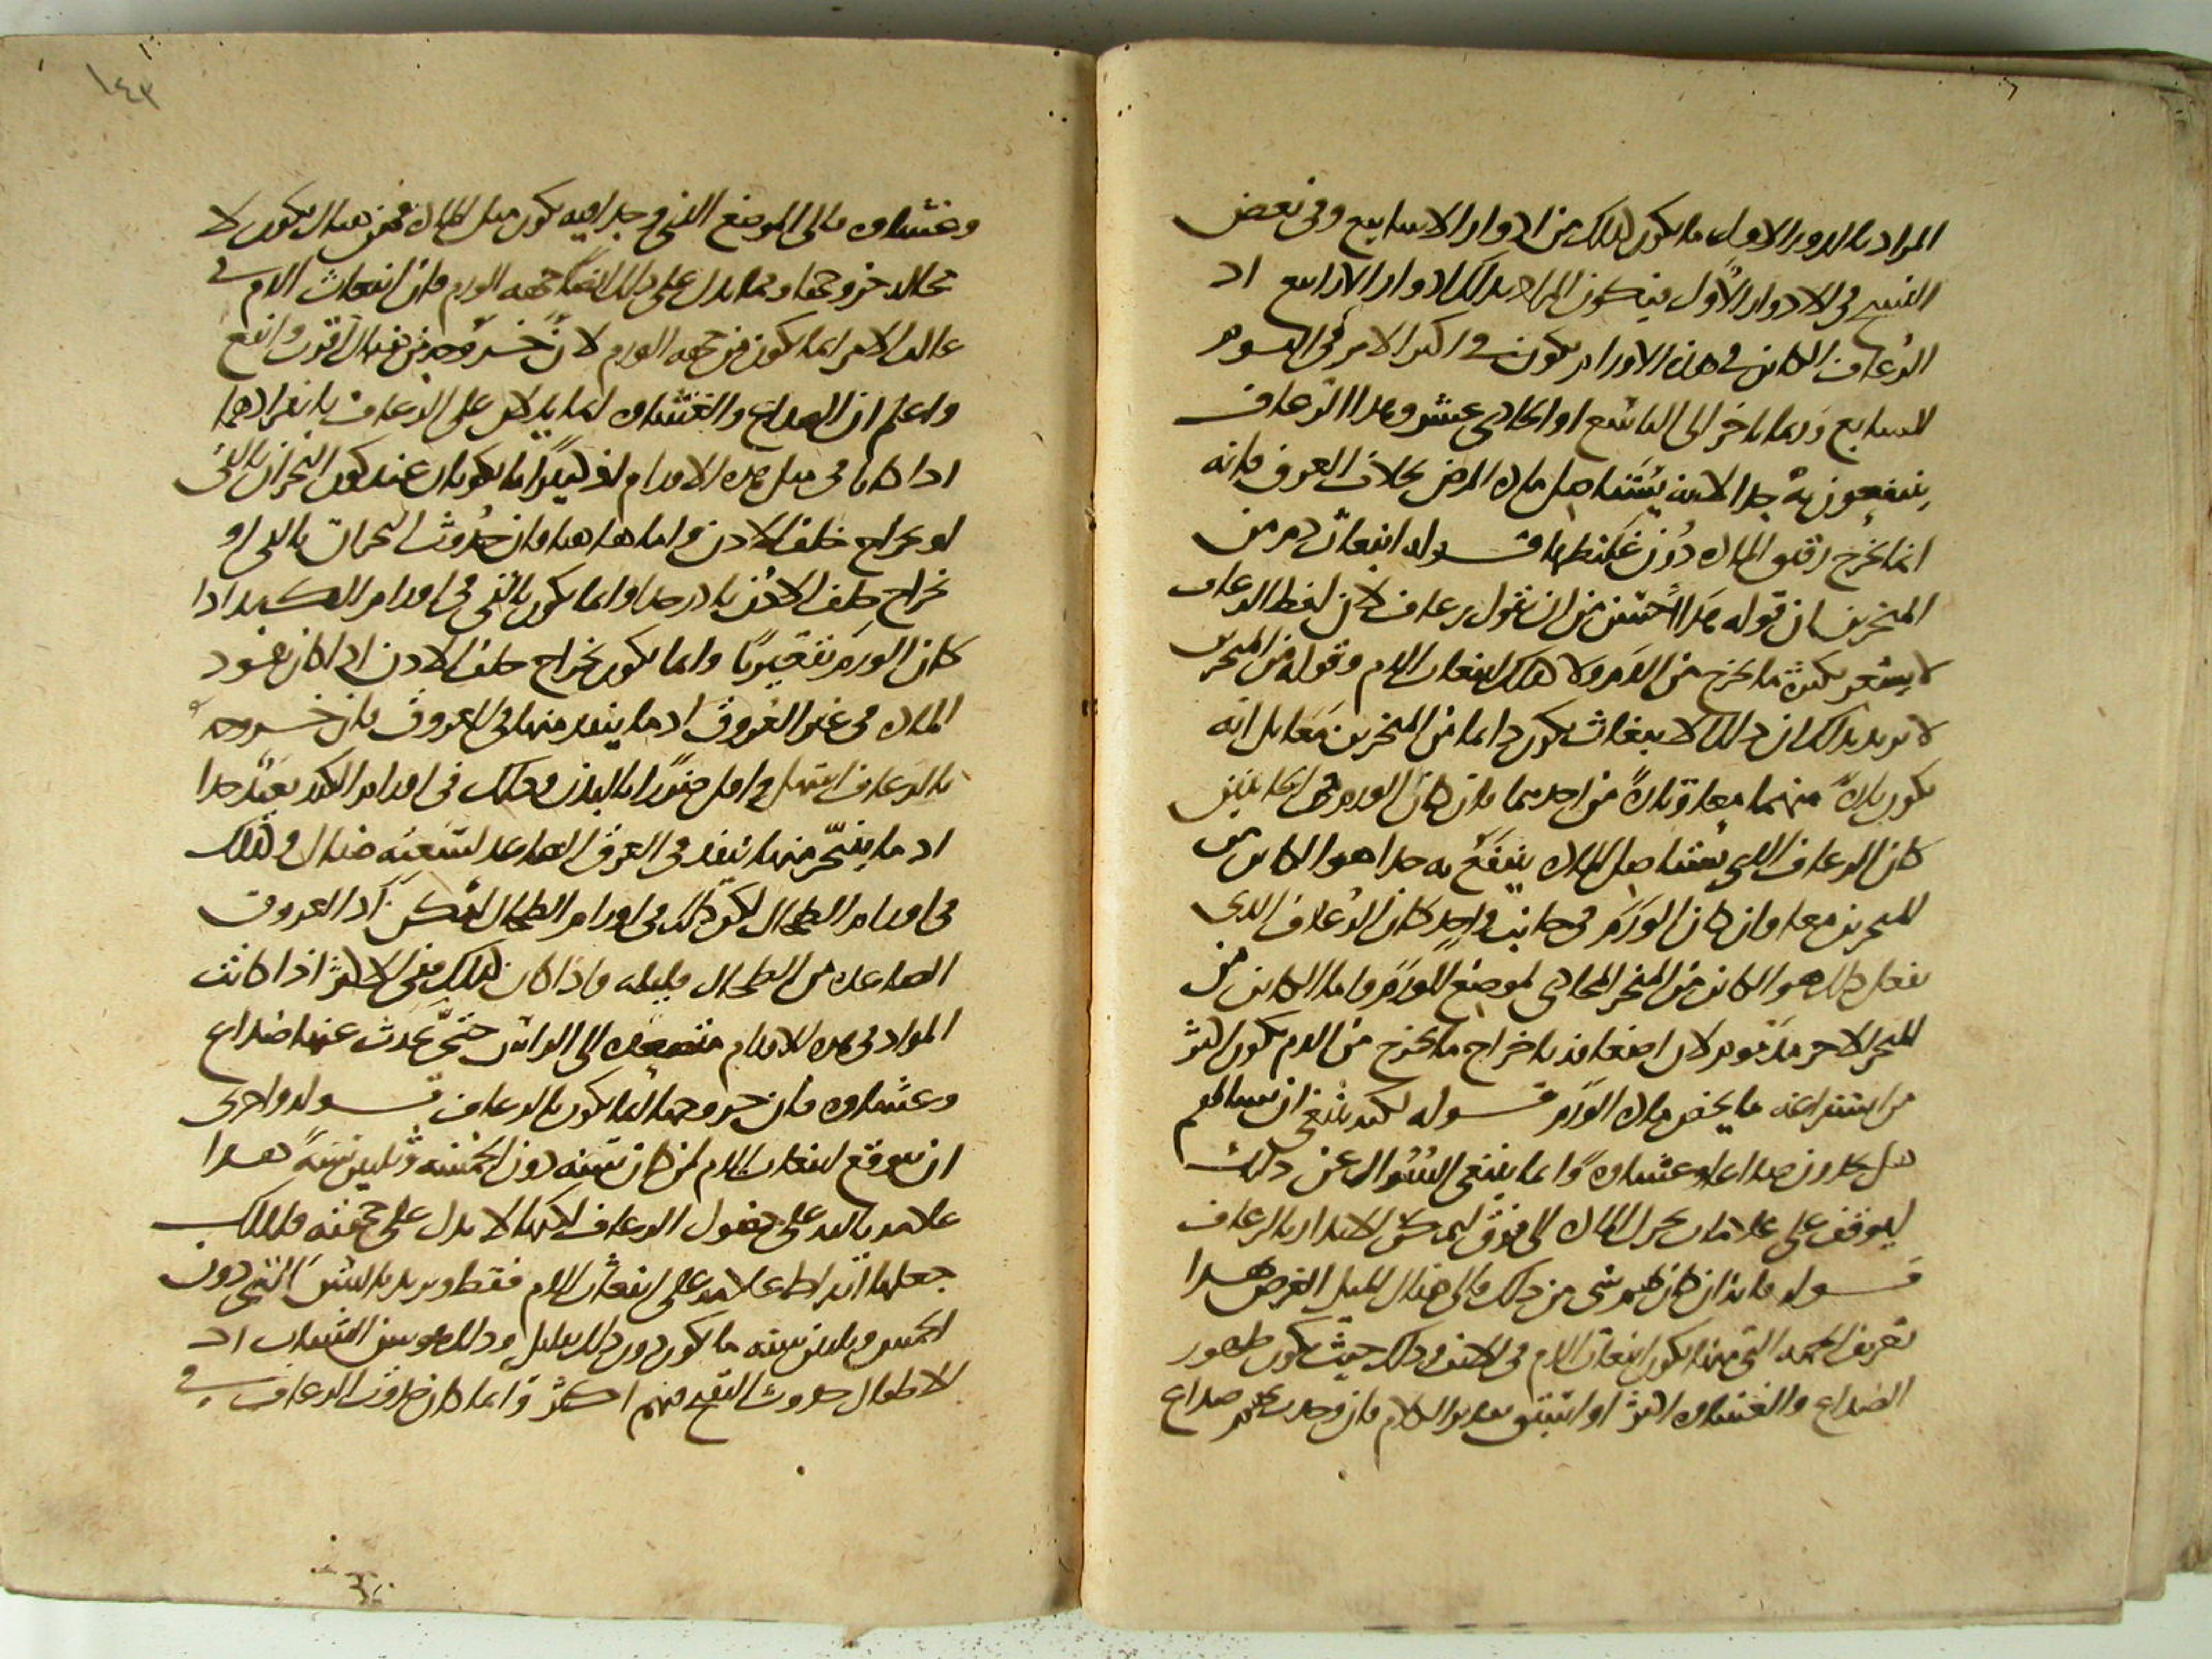 المراد بالدور الاول ما يكون كذلك من ادوار الاسابيع وفي بعض
النسخ في الادوار الاول فيكون المراد بذلك ادوار الارابيع اذ
الرعاف الكائن في هذه الاورام يكون في اكثر الامر في اليوم
السابع وربما تاخر الى التاسع او الحادي عشر وهذا الرعاف
ينتفعون به جدا لانه يستاصل مادة المرض بخلاف العرق فانه
انما يخرج رقيق المادة دون غليظها قوله انبعاث دم من
المنخرين ان قوله هذا احسن من ان نقول رعاف لان لفظ الرعاف
لا يشعر بكثرة ما يخرج من الدم ولا كذلك انبعاث الدم وقوله من المنخرين
لا يريد بذلك ان ذلك الانبعاث يكون دائما من المنخرين معا بل انه
يكون تارة منهما معا وتارة من احدهما فان كان الورم في الجانبين
كان الرعاف الذي يستاصل المادة ينتفع به جدا هو الكائن من
المنخرين معا وان كان الورم في جانب واحد كان الرعاف الذي
يفعل ذلك هو الكائن من المنخر المحاذي لموضع الورم واما الكائن من
المنخر الاخر لان اضعافه باخراج ما يخرج من الدم يكون اكثر
من استفراغه ما يخص مادة الورم قوله لكنه ينبغي ان تسالهم
هل يجدون صداعا او غشاوة وانما ينبغي السؤال عن ذلك
ليوقف على علامات تحرك المادة الى فوق الانذار بالرعاف
قوله فانه ان كان ظهر شي من ذلك فالى هناك الميل الغرض بهذا
تعريف الجهة التي منها يكون انبعاث الدم في الانف وذلك حيث يكون ظهور
الصداع والغشاوة اكثر او اسبق الكلام فان وجدت صداع
١٤٣
وغشاوه فالى الموضع الذي وجدا فيه يكون ميل المادة فمن هناك يكون لا
محاله خروجها ومما يدل على ذلك ايضا جهه الورم فان انبعاث الدم في
غالب الامر انما يكون من جهه الورم لان خروجه من هناك اقرب وانفع
واعلم ان الصداع والغشاوه انما يدلان على الرعاف بانفرادهما
اذا كانا في مثل هذه الاورام اذ كثيرا ما يكونان عند كون البحران بالقي
او بخراج خلف الاذن واما هاهنا فان حدوث البحران بالقي او
بخراج خلف الاذن نادر جدا وانما يكون بالقي في اورام الكبد اذا
كان الورم تقعيريا وانما يكون بخراج خلف الاذن اذا كان نفوذ
المادة في غير العروق اذ ما ينفذ منها في العروق فان خروجه
بالرعاف اسهل واقل ضررا بالبدن وذلك في اورام الكبد بعيد جدا
اذ ما يتبخر منها ينفذ في العرق الصاعد لسعته هناك وكذلك
في اورام الطحال لكن ذلك في اورام الطحال اذ العروق
الصاعدة من الطحال قليله واذا كان كذلك ففي الاكثر اذا كانت
المواد في هذه الاورام متصعده الى الراس حتى يحدث عنها صداع
وغشاوه فان خروجها انما يكون بالرعاف قوله واحرى
ان يتوقع انبعاث الدم لمن كان سنه دون الخمسه وثلثين سنه هذا
علامه بالذ على حصول الرعاف لكنها لا تدل على جهته فلذلك
جعلها ابقراط علامه على انبعاث الدم فقط ويريد بالسن التي دون
الخمس وثلثين سنه ما يكون دون ذلك بقليل وذلك هو سن الشباب اذ
الاطفال حدوث القي منهم اكثر وانما كان حدوث الرعاف في